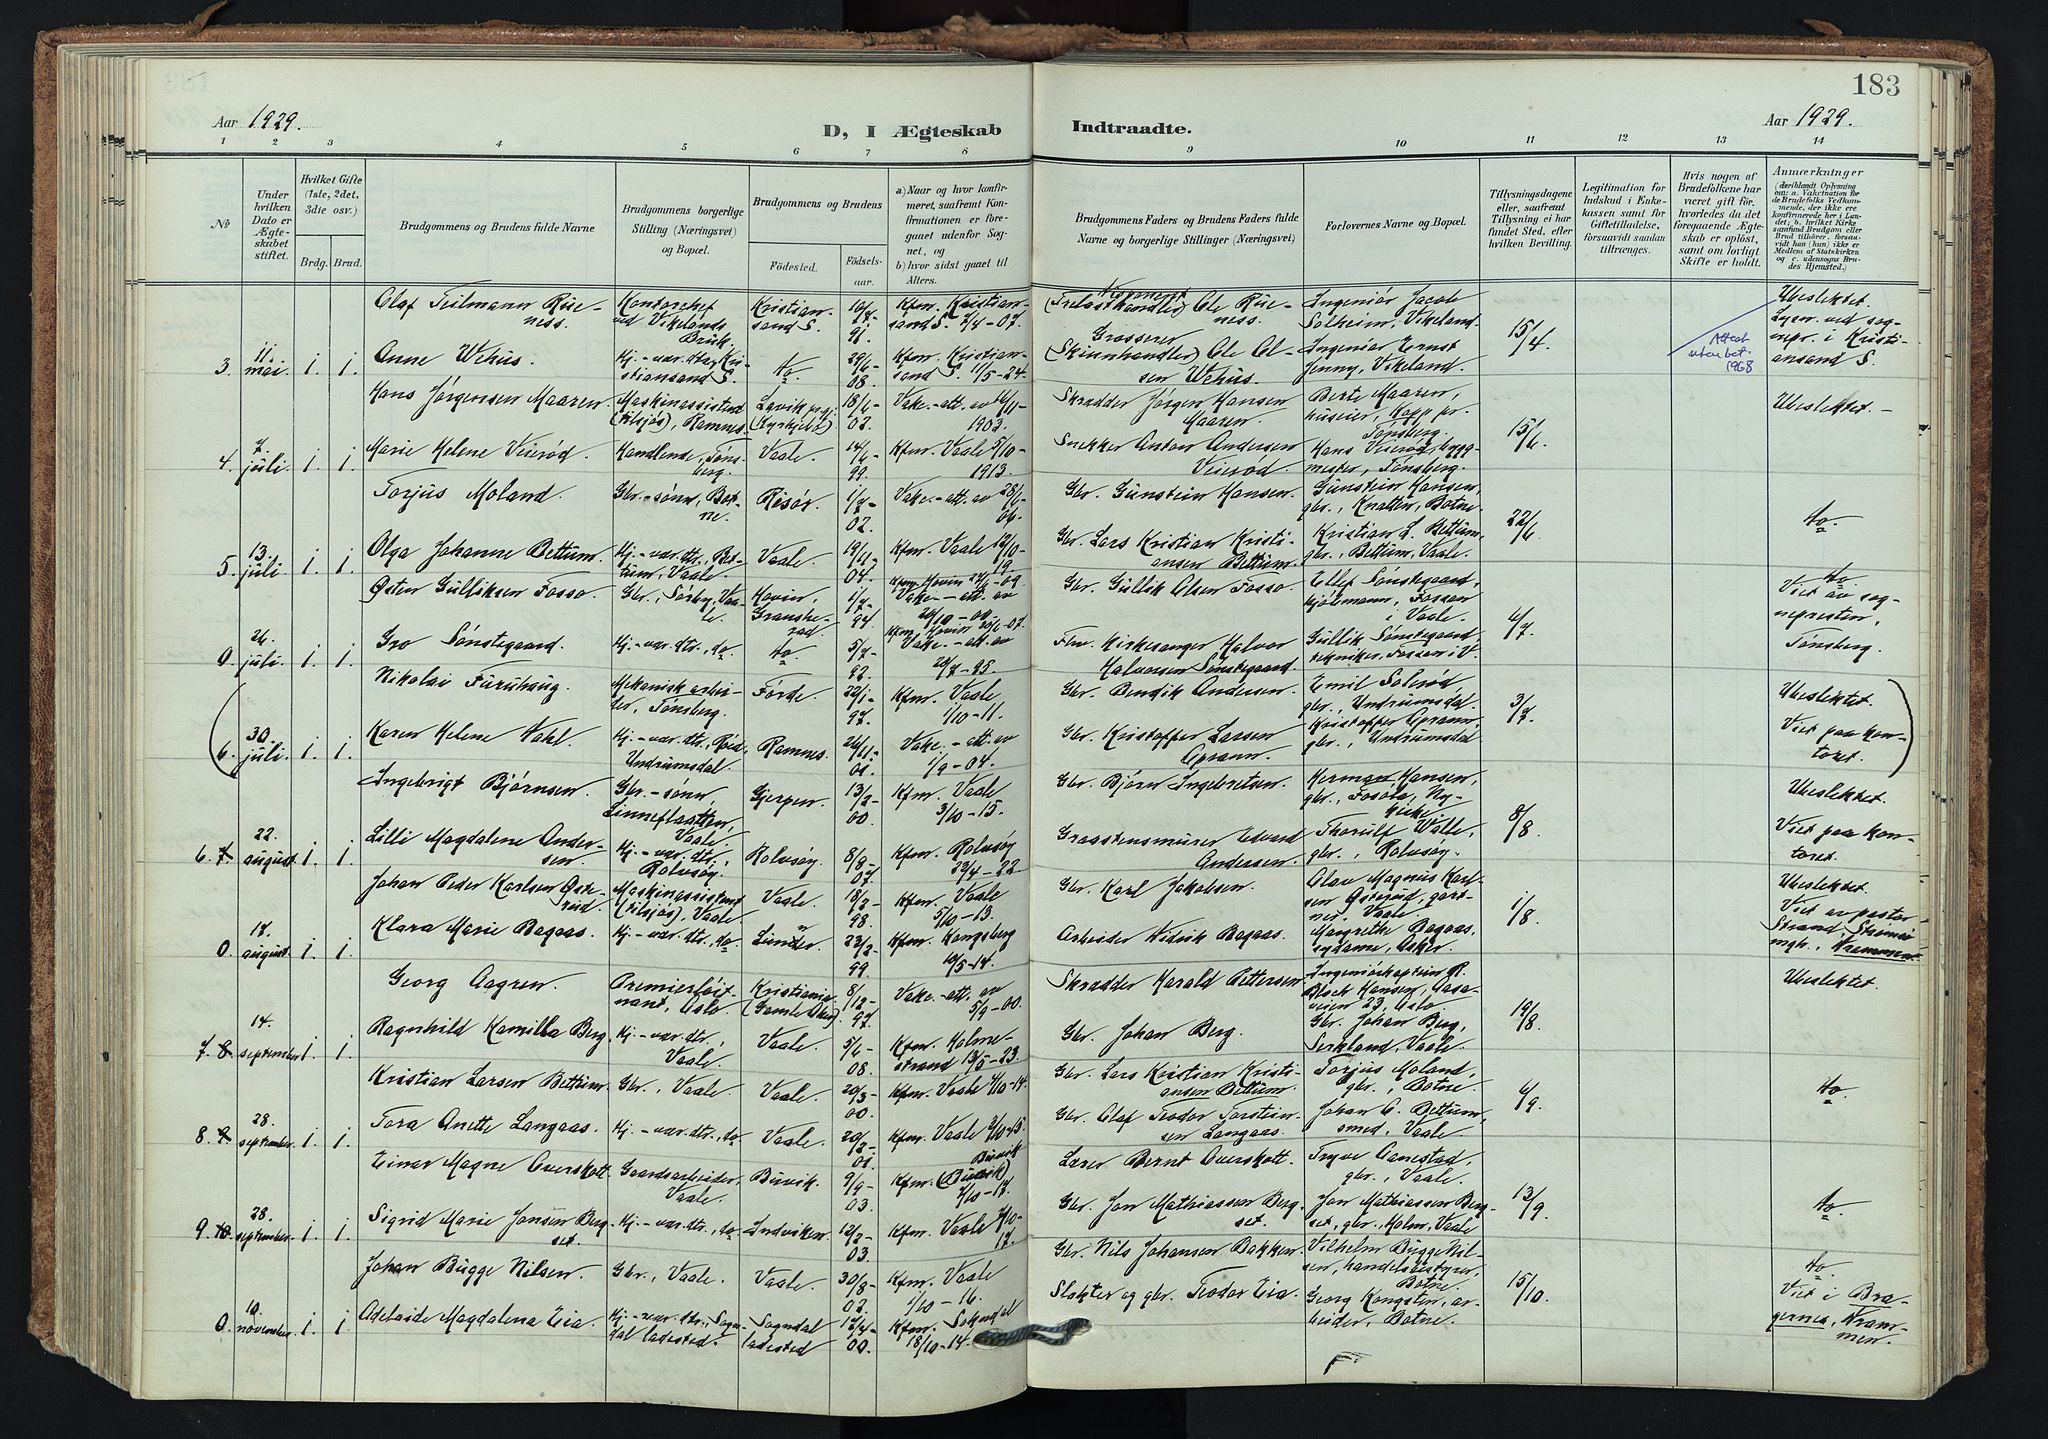 183
Aar 1929.
D, I Ægteskab Indtraadte.
Aar 1929.
1 2 3 4 5 6 7 8 9 10 11 12 13 14
№
Under hvilken Dato er Ægteskabet stiftet.
Hvilket Gifte (1ste, 2det, 3die osv.)
Brdg. Brud.
Brudgommens og Brudens fulde Navne
Brudgommens borgerlige Stilling (Næringsvei) og Bopæl.
Brudgommens og Brudens
Fødested. Fødselsaar.
a) Naar og hvor konfirmeret, saafremt Konfirmationen er foregaaet udenfor Sognet, og
b) hvor sidst gaaet til Alters.
Brudgommens Faders og Brudens Faders fulde Navne og borgerlige Stillinger (Næringsvei)
Forlovernes Navne og Bopæl.
Tillysningsdagene eller, saafremt Tillysning ei har fundet Sted, efter hvilken Bevilling.
Legitimation for Indskud i Enkekassen samt for Giftetilladelse, forsaavidt saadan tiltrænges.
Hvis nogen af Brudefolkene har været gift før, hvorledes da det foregaaende Ægteskab er opløst, samt om lovligt Skifte er holdt.
Anmærkninger
Olaf Teilmann Rueness. Kontorchef ved Vikelands Bruk. Kristiansand S. 10/7-91. Kfm. Kristiansand S. Ole Rueness. Ingeniør Jacob Solheim, Vikeland. Ubeslektet.
3. 11. mai. 1. 1. Anne Wehus. Hj.-vær. dtr. Kristiansand S. do 29/6-08. Kfm. Kristiansand S. 11/5-24. Grosserer (Skinnhandler) Ole Olsen Wehus. Ingeniør Ernst Jenny, Vikeland. 15/4. Attest utarbet. 1968 Lysn. ved sognepr. i Kristiansand S.
Hans Jørgensen Maaren. Maskinassistent (tilsjøs), Ramnes. 18/6-02. Vakc.-att. av 16/11-1903. Skredder Jørgen Hansen Maaren. Maaren, Tønsberg. Ubeslektet.
4. 7. juli. 1. 1. Marie Helene Veierød. Handlende, Tønsberg. Vaale. 14/6-99. Kfm. Vaale 5/10-1913. Snekker Anton Andersen Veierød. Hans Veierød, byggmester, Tønsberg. 15/6.
Torjus Moland. Gbr.-sønn, Botne. Risør. 1/7-02. Vakc.-att. av 28/6-06. Gbr. Gunstein Hansen. Gunstein Hansen, gbr., Knatten, Botne.
5. 13. juli. 1. 1. Olga Johanne Bettum. Hj.-vær. dtr., Bettum, Vaale. Vaale. 19/11-04. Kfm. Vaale 12/10-19. Gbr. Lars Kristian Kristiansen Bettum. Kristian L. Bettum, gbr., Bettum, Vaale. 22/6. do
Østen Gulliksen Fosso. Gbr., Sørby, Vaale. Hovin, Gransherad. 1/7-94. Kfm. Hovin Vakc.-att. av 20/10-00. Gbr. Gullik Olsen Fosso. Sønstegaard, Fossan i Vaale. do
0. 26. juli. 1. 1. Gro Sønstegaard. Hj.-vær. dtr., do. do 5/7-92. Vakc.-att. av 20/7-98. Fhv. Kirkesanger Halvor Halvorsen Sønstegaard. Gullik Sønstegaard, tekniker, Fossan i V. 4/7. Viet av sognepresten, Tønsberg.
Nikolai Furuhaug. Mekanisk arbeider, Tønsberg. Førde. 22/1-97. Kfm. Vaale 1/10-11. Gbr. Bendik Andersen. Emil Solerød, gbr., Undrumsdal. Ubeslektet.
6. 30. juli. 1. 1. Karen Helene Dahl. Hj.-vær. dtr., Røed, Undrumsdal. Ramnes. 26/11-01. Vakc.-att. av 1/9-04. Gbr. Kristoffer Larsen Oprann. Kristoffer Oprann, gbr., Undrumsdal. 3/7. Viet paa kontoret.
Ingebrigt Bjørnsen. Gbr.-sønn, Linnestastten, Vaale. Gjerpen. 13/2-00. Kfm. Vaale 3/10-15. Gbr. Bjørn Ingebretsen. Herman Hansen, gbr., Ubeslektet.
6. 7. 22. august 1. 1. Lilli Magdalene Andersen. Hj.-vær. dtr., Rolvsøy. Rolvsøy. 8/8-07. Kfm. Rolvsøy 23/4-22. Graastensmurer Edvard Andersen. Thorulf Walle, gbr., Rolvsøy. 8/8. Viet paa kontoret.
Johan Peder Karlsen Østereid. Maskinassistent (tilsjøs), Vaale. Vaale. 18/2-98. Kfm. Vaale 5/10-13. Gbr. Karl Jakobsen. Olav Magnus Karlsen gartner, Vaale. Ubeslektet.
0. 17. august. 1. 1. Klara Marie Bagaas. Hj.-vær. dtr., do. Lunder. 22/2-99. Kfm. Kongsberg 10/5-14. Arbeider Didrik Bagaas. Margrethe Bagaas, sydame, Asker. 1/8. Viet av pastor Strand, Strømsø mgh., Drammen.
Georg Aagren. Premierløitnant, Oslo. Kristiania (Gamle Aker). 8/12-97. Vakc.-att. av 5/9-00. Skredder Harald Pettersen. Ingeniørkaptein R. Bloch Hansen, Gasaveien 23, Oslo. Ubeslektet.
7. 8. 14. september 1. 1. Ragnhild Kamilla Berg. Hj.-vær. dtr., Vaale. Vaale. 5/6-08. Kfm. Holmestrand 13/5-23. Gbr. Johan Berg. Gbr. Johan Berg, Serkland, Vaale. 19/8.
Kristian Larsen Bettum. Gbr., Vaale. Vaale. 20/3-00. Kfm. Vaale 4/10-14. Gbr. Lars Kristian Kristiansen Bettum. Torjus Moland, gbr., Botne.
8. 9. 28. september. 1. 1. Tora Anette Langaas. Hj.-vær. dtr., do. Vaale. 20/2-01. Kfm. Vaale Gbr. Olaf Teodor Torsteinsen Langaas. Johan O. Bettum, smed, Vaale. 6/9. do
Einar Magne Overskott. Gaardsarbeider, Vaale. Buvik. 9/9-03. Kfm. Buvik (Buvik) 7/10-17. Lærer Bernt Overskott. Tryve Aanestad, gbr., Vaale.
9. 10. 28. september. 1. 1. Sigrid Marie Jonsen Bergset. Hj.-vær. dtr., do. Indviken. 12/2-03. Kfm. Vaale 7/10-17. Gbr. Jon Mathiassen Bergset. Jon Mathiassen Bergset, gbr., Holm, Vaale. 13/9. do
Johan Bugge Nilsen. Gbr., Vaale. Vaale. 30/8-02. Kfm. Vaale 1/10-16. Gbr. Nils Johansen Bakken. Vilhelm Bugge Nilsen, handelsbestyrer, Botne. do
0. 10. november. 1. 1. Adelaide Magdalena Eia. Hj.-vær. dtr., Sogndal ladested. Sogndal ladested 17/4-00. Kfm. Sokndal 18/10-14. Slakter og gbr. Teodor Eia. Georg Kongsten, arbeider, Botne. 15/10. Viet i Bragernes, Drammen.